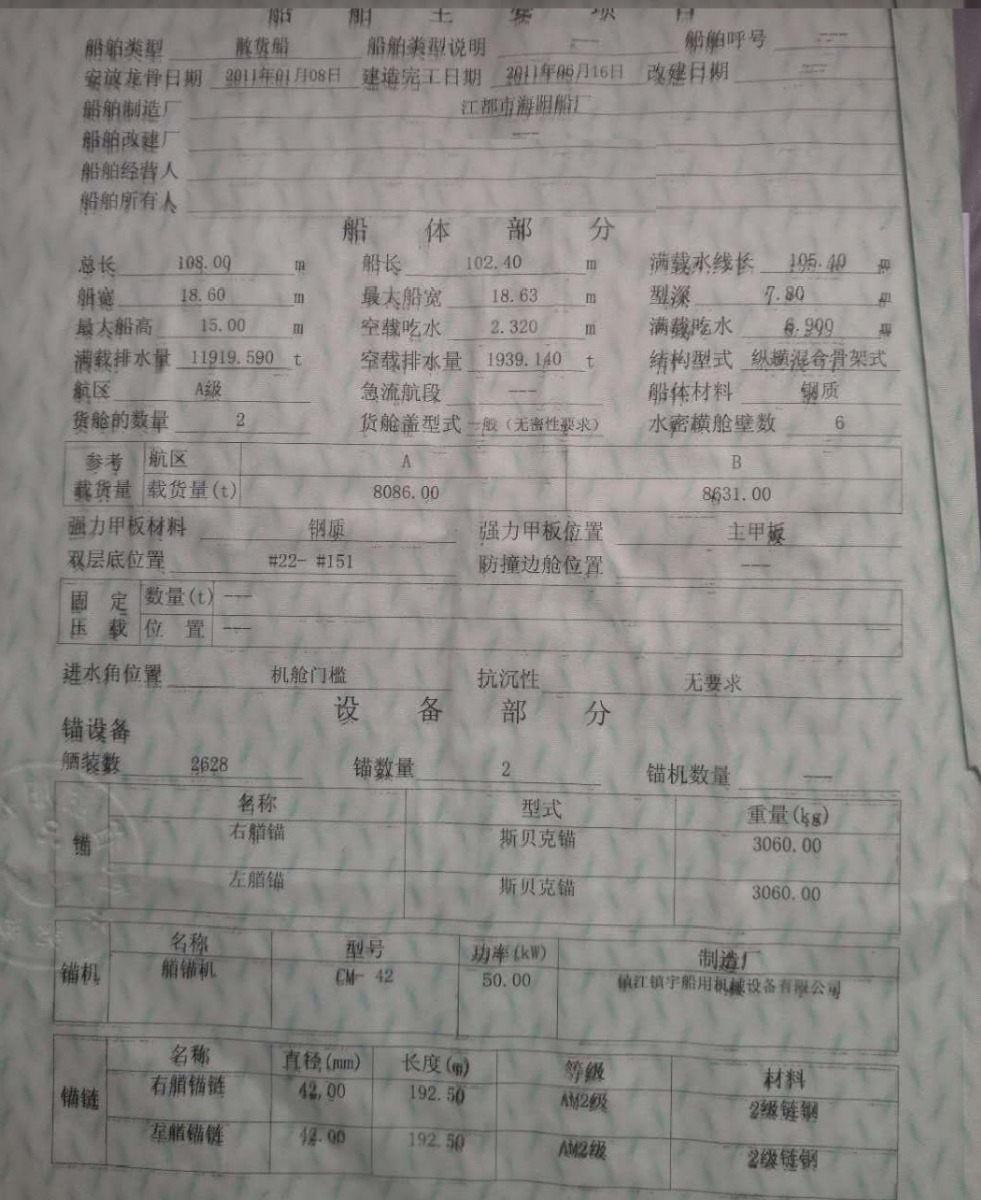 船舶主要项目
船舶类型 散货船 船舶类型说明 --- 船舶呼号 ---
安放龙骨日期 2011年01月08日 建造完工日期 2011年06月16日 改建日期 ---
船舶制造厂 江都市海阳船厂
船舶改建厂 ---
船舶经营人
船舶所有人
船体部分
总长 108.00 m 船长 102.40 m 满载水线长 105.40 m
船宽 18.60 m 最大船宽 18.63 m 型深 7.80 m
最大船高 15.00 m 空载吃水 2.320 m 满载吃水 6.900 m
满载排水量 11919.590 t 空载排水量 1939.140 t 结构型式 纵横混合骨架式
航区 A级 急流航段 --- 船体材料 钢质
货舱的数量 2 货舱盖型式 一般（无密性要求） 水密横舱壁数 6
参考 航区 A B
载货量 载货量(t) 8086.00 8631.00
强力甲板材料 钢质 强力甲板位置 主甲板
双层底位置 #22- #151 防撞边舱位置 ---
固定 数量(t) ---
压载 位置 ---
进水角位置 机舱门槛 抗沉性 无要求
设备部分
锚设备
舾装数 2628 锚数量 2 锚机数量 ---
锚 名称 型式 重量(kg)
右艏锚 斯贝克锚 3060.00
左艏锚 斯贝克锚 3060.00
锚机 名称 型号 功率(kW) 制造厂
艏锚机 CM- 42 50.00 镇江镇宇船用机械设备有限公司
锚链 名称 直径(mm) 长度(m) 等级 材料
右艏锚链 42.00 192.50 AM2级 2级链钢
左艏锚链 42.00 192.50 AM2级 2级链钢